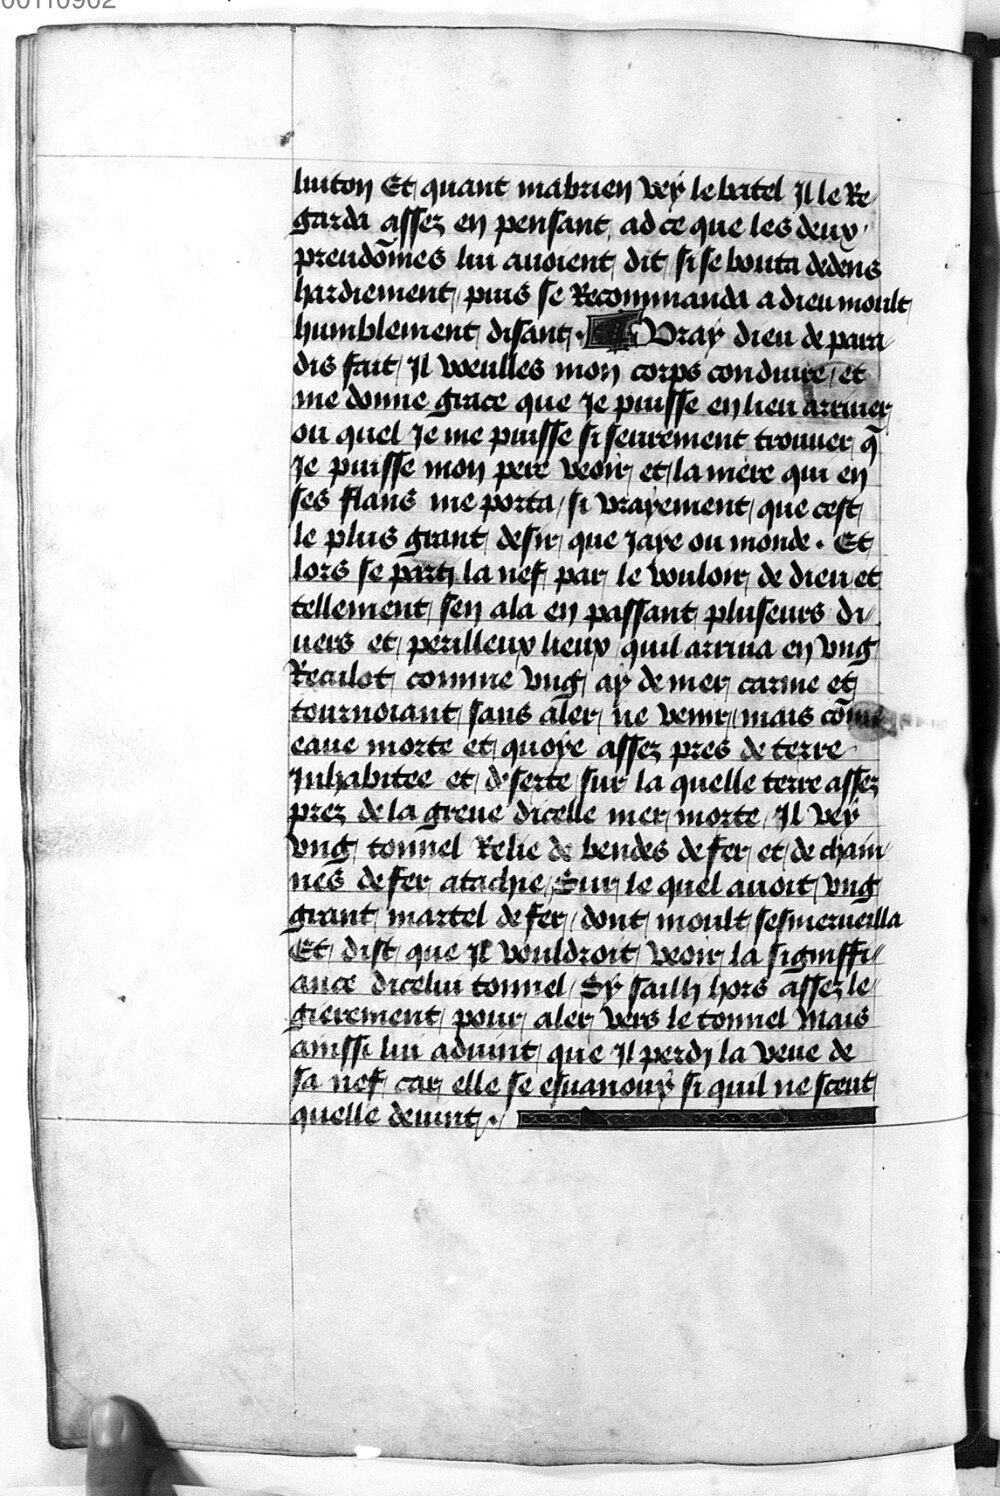 00110902
luiton Et quant mabrien vey le batel Il le Re
garda assez en pensant ad ce que les deux
preudōmes lui auoient dit si se bouta dedēns
hardiement puis se Recommanda a dieu moult
humblement disant. Vray dieu de para
dis fait Il voeulles mon corps conduire et
me donne grace que Je puisse en lieu arriuer
ou quel Je me puisse si seurement trouuer q̄
Je puisse mon pere veoir et la mere qui en
ses flans me porta si vrayement que cest
le plus grant desir que Jaye ou monde. Et
lors se parti la nef par le vouloir de dieu et
tellement sen ala en passant pluseurs di
uers et perilleux lieux quil arriua en vng
Reculot comme vng ay de mer carme et
tournoiant sans aler ne venir mais cōme
eaue morte et quoye assez pres de terre
Inhabitee et deserte sur la quelle terre assez
prez de la greue dicelle mer morte Il vey
vng tonnel Relie de bendes de fer et de chain
nes de fer atachie Sur le quel auoit vng
grant martel de fer dont moult sesmerueilla
Et dist que Il vouldroit veoir la signiffi
ance dicelui tonnel Sy sailli hors assez le
gierement pour aler vers le tonnel Mais
ainssi lui aduint que Il perdi la veue de
sa nef car elle se esuanouy si quil ne sceut
quelle deuint.